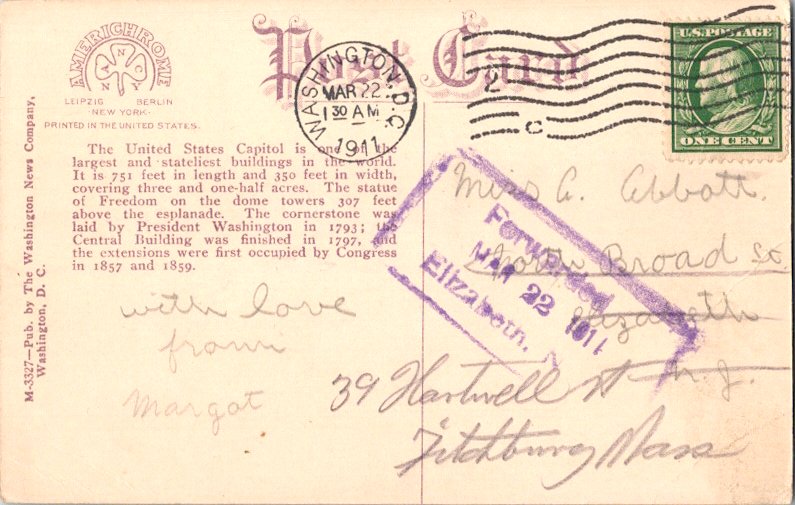 AMERICHROME
A N C N Y
LEIPZIG BERLIN
NEW YORK
PRINTED IN THE UNITED STATES.
Post Card
WASHINGTON, D.C.
MAR 22
1 30 AM
1911
2
C
U.S. POSTAGE
ONE CENT
The United States Capitol is one of the
largest and stateliest buildings in the world.
It is 751 feet in length and 350 feet in width,
covering three and one-half acres. The statue
of Freedom on the dome towers 307 feet
above the esplanade. The cornerstone was
laid by President Washington in 1793; the
Central Building was finished in 1797, and
the extensions were first occupied by Congress
in 1857 and 1859.
M-3327—Pub. by The Washington News Company,
Washington, D. C.
with love
from
Margot
Miss A. Abbott.
North Broad St.
Elizabeth
N.J.
Forwarded
MAR 22 1911
Elizabeth,
39 Hartwell St
Fitchburg Mass